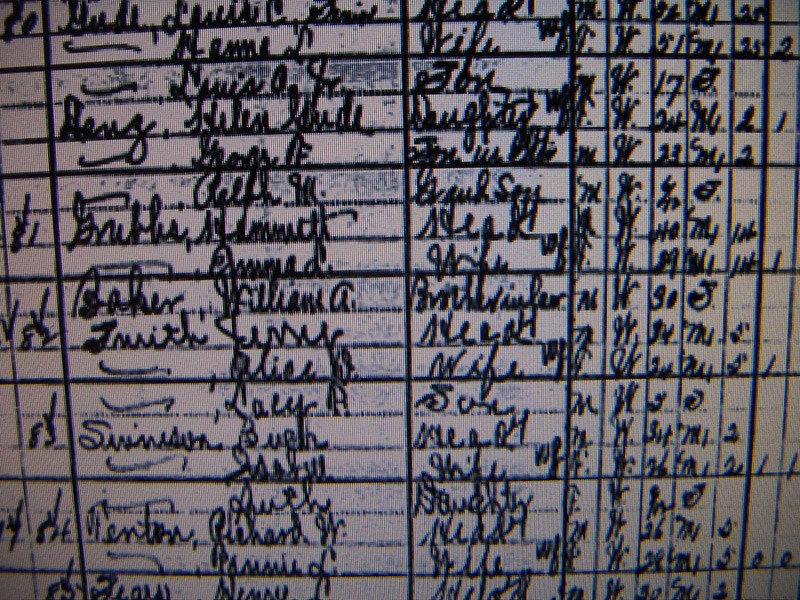 80 Gude, Louis C, Head m W. m,
Hanna L Wife F. W. 51 m, 25 2
Louis A, Jr. Son m W 17 S
Denz, Helen Gude Daughter F. W. 24 M, 2 1
George F Son in m W 23 m, 2
Ralph M. Grand Son m W. S
81 Grubbs, Hemmett Head W. 40 m, 14
Emma L. Wife F. W. 39 m, 14 1
Baker, William A. Brotherinlaw m W 30 S
82 Smith Head m W. 34 m, 5
, Alice D. Wife F W 24 m, 5 1
, Lacy R. Son m W 5 S
83 Swinison Hugh Head m W. 34 m, 2
Wife F. W. 26 m, 2 1 1
Ruth Daughter F W. S
84 Venton, Richard W. Head m W. 26 m 5
Nannie L. Wife F. W. m, 5 0 0
85 Henry Head m W 30 m 2